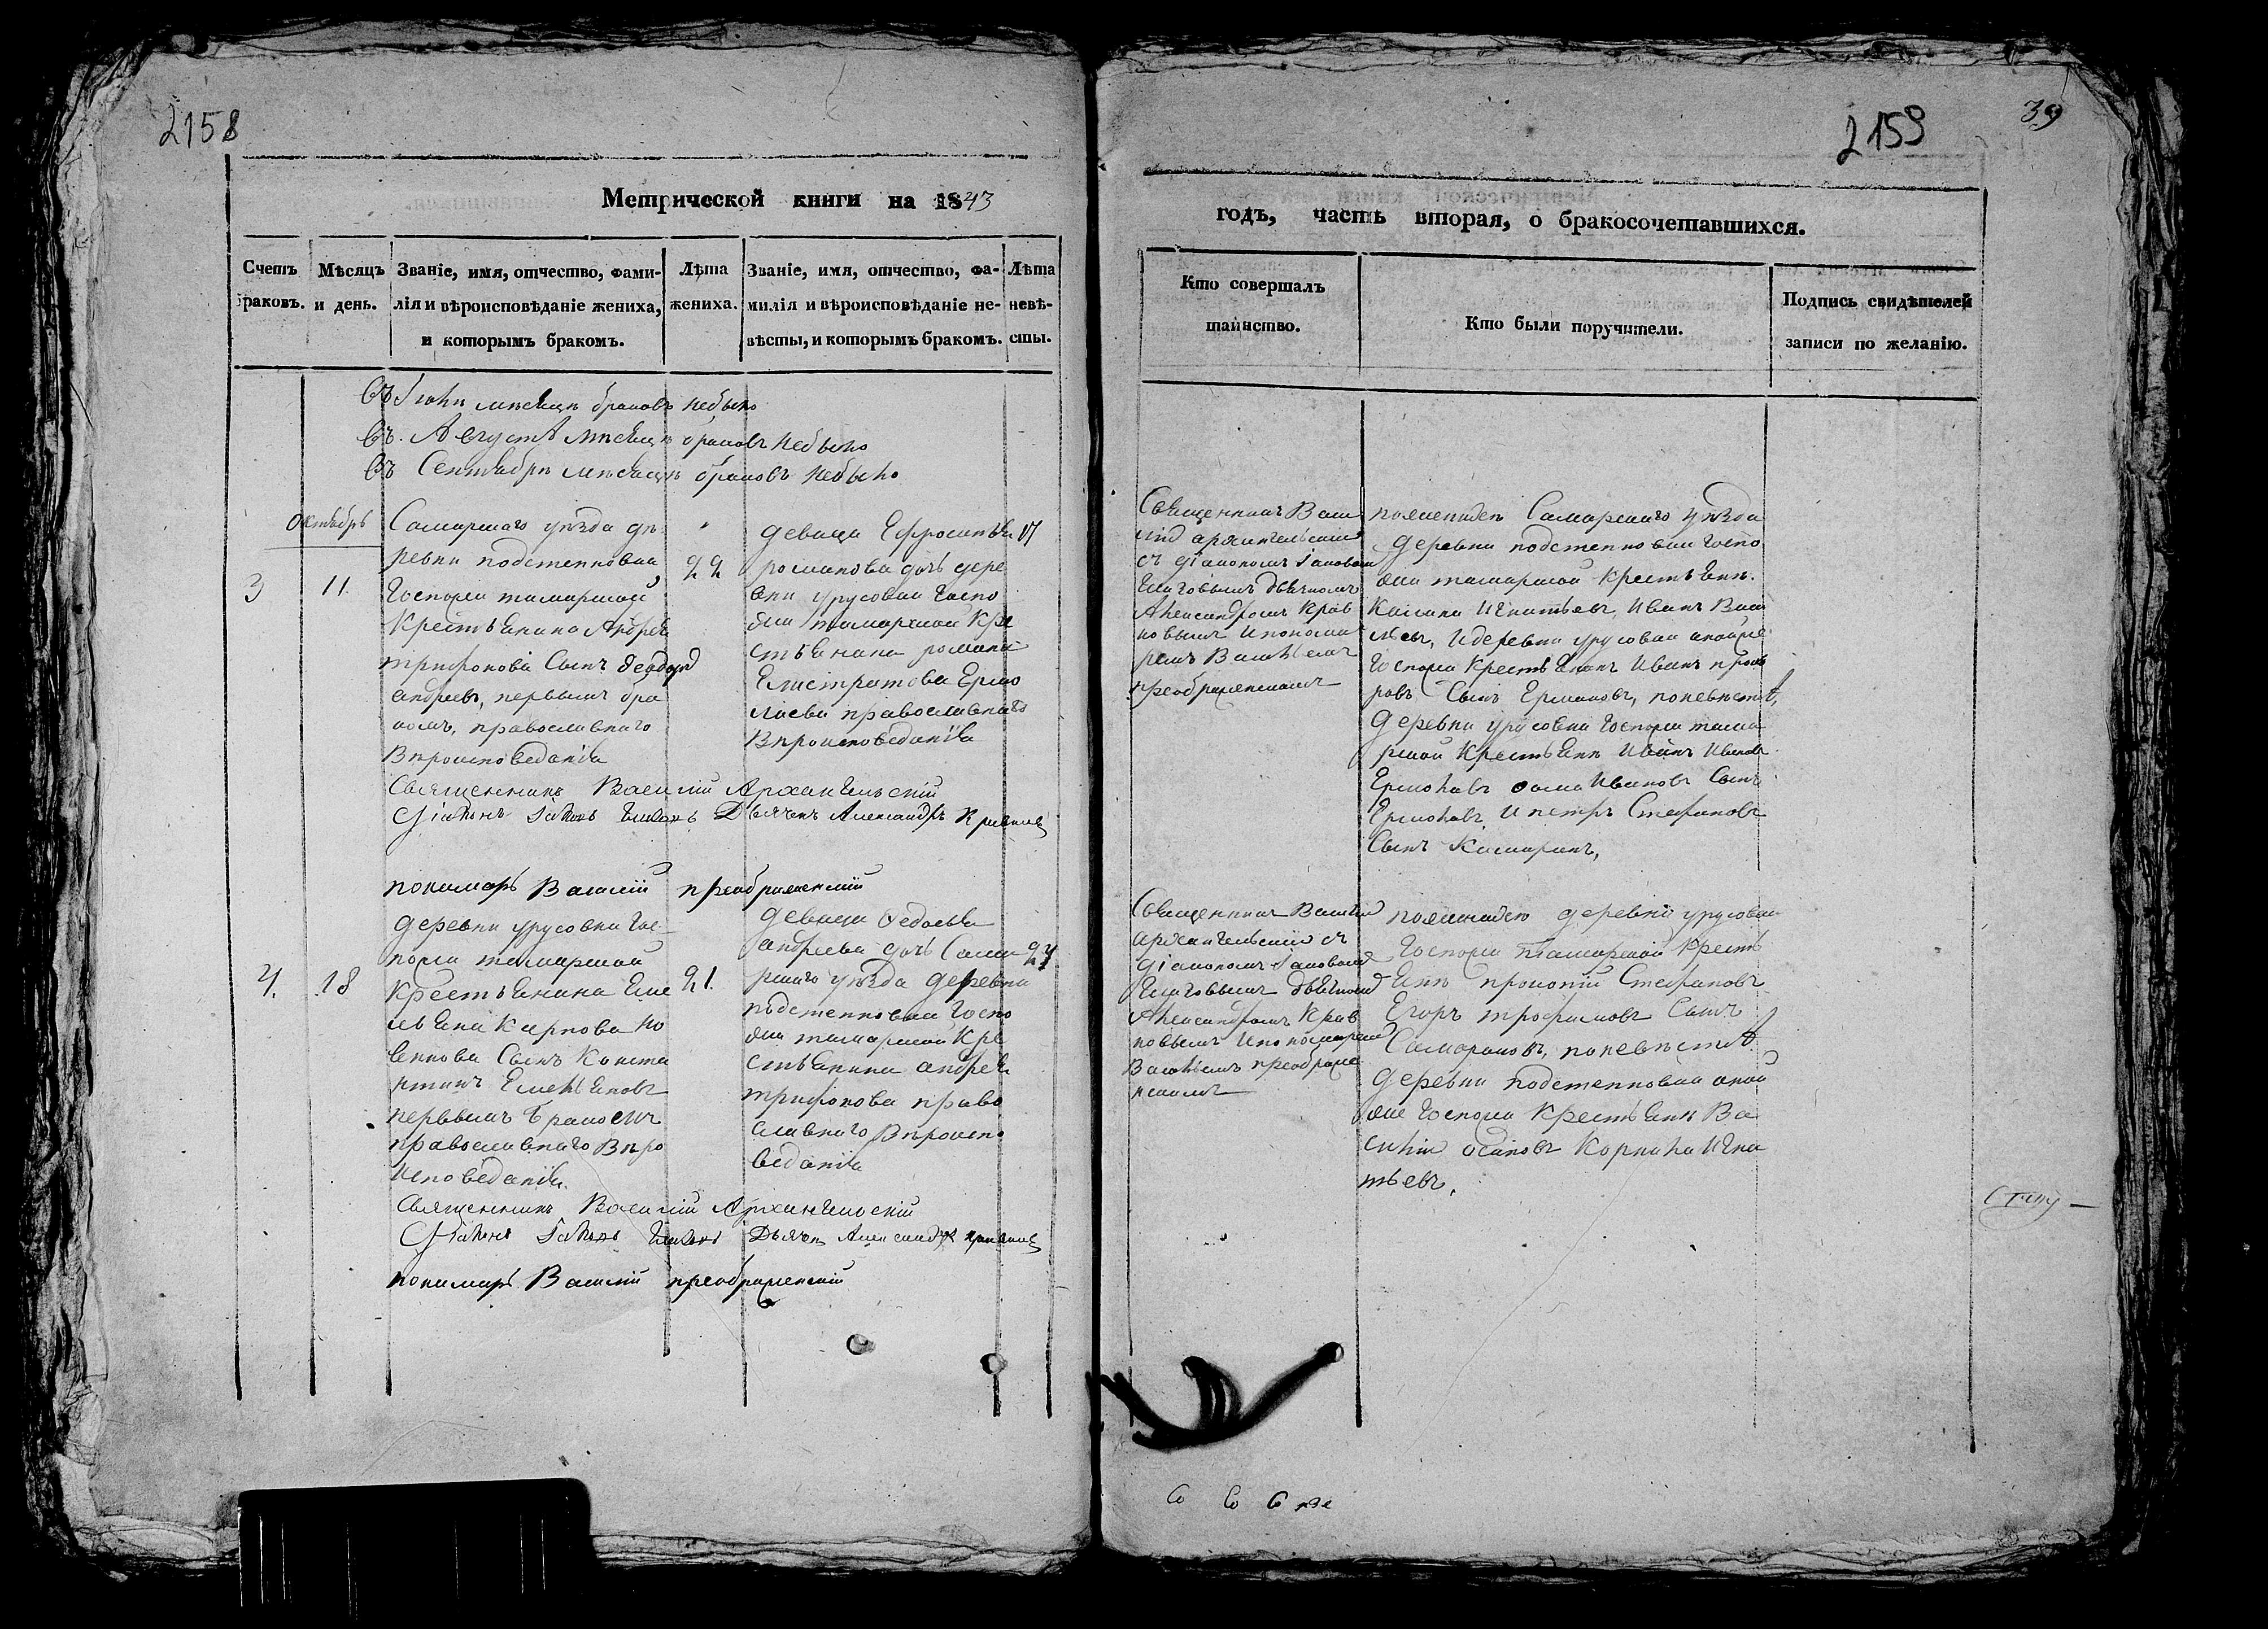 2158
Метрической книги на 1843
Счетъ браковъ.
Мѣсяцъ и день.
Званіе, имя, отчество, фами-
лія и вѣроисповѣданіе жениха,
и которымъ бракомъ.
Лѣта
жениха.
Званіе, имя, отчество, фа-
милія и вѣроисповѣданіе не-
вѣсты, и которымъ бракомъ.
Лѣта
невѣ-
сты.
въ Іюлѣ мѣсяцѣ браковъ небыло
въ Августѣ мѣсяцѣ браковъ небыло
въ Сентябрѣ мѣсяцѣ браковъ небыло
Октябрь
3
11
Самарскаго уѣзда де
ревни подстепновки
Госпожи
Крестьянина Андрея
трифонова Сынъ Феодоръ
андреевъ, первымъ бра
комъ, православнаго
Вѣроисповеданія
22
девица Ефросинья
романова дочь дере
вни урусовки Госпо
жи Кре
стьянина романа
Елистратова Ермо
лаева православнаго
Вѣроисповеданія
17
Священникъ Василій Архангельскій
Діаконъ Іаковъ Дьячекъ Александръ
пономарь Василій преображенскій
4.
18
деревни урусовки Гос
пожи
Крестьянина Еме
льяна Карпова
Сынъ Конста
нтинъ Емельяновъ
первымъ бракомъ
православнаго Вѣро
исповеданія.
21.
девица Федосья
андреева дочь Сама
рскаго уѣзда деревни
подстепновки Госпо
жи Кре
стьянина андрея
трифонова право
славнаго Вѣроиспо
веданія
24
Священникъ Василій Архангельскій
Діаконъ Іаковъ Дьячекъ Александръ
пономарь Василій преображенскій
39
2159
годъ, часть вторая, о бракосочетавшихся.
Кто совершалъ
таинство.
Кто были поручители.
Подпись свидѣтелей
записи по желанію.
Священникъ Васи
лій архангельскій
съ діакономъ Іаковомъ
дьячкомъ
Александромъ
и понома
ремъ Васильемъ
преображенскимъ
поженихѣ Самарскаго уѣзда
деревни подстепновки Госпо
жи Крестьяне.
Игнатьевъ, Иванъ Васи
льевъ, и деревни урусовки
Госпожи Крестьянинъ Иванъ
Сынъ поневѣстѣ,
деревни урусовки Госпожи
Крестьяне Иванъ Ивановъ
Ермолаевъ Фома Ивановъ Сынъ
Ермолаевъ и петръ Стефановъ
Сынъ
Священникъ Василій
архангельскій съ
діакономъ Іаковомъ
дьячкомъ
Александромъ
и пономаремъ
Васильемъ преображе
нскимъ
поженихѣ деревни урусовки
Госпожи Кресть
яне прокопій Стефановъ
Егоръ трофимовъ Сынъ
поневѣстѣ
деревни подстепновки
же Госпожи Крестьяне Ва
силій осиповъ Игна
тьевъ.